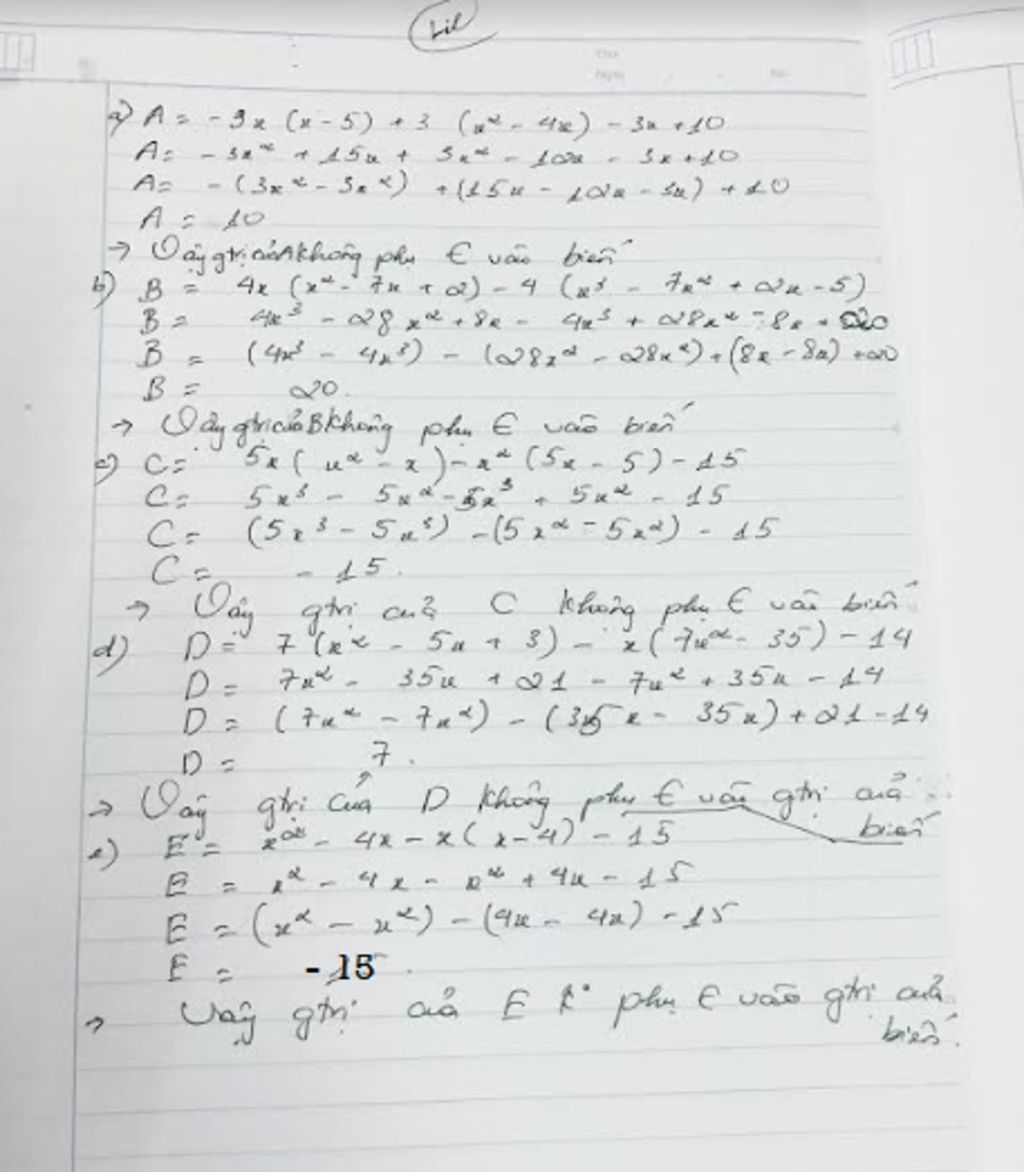 Lil
a) A = - 3x (x - 5) + 3 (x² - 4x) - 3x + 10
A = - 3x² + 15x + 3x² - 12x - 3x + 10
A = - (3x² - 3x²) + (15x - 12x - 3x) + 10
A = 10
→ Vậy gtrị của A không phụ ∈ vào biến
b) B = 4x (x² - 7x + 2) - 4 (x³ - 7x² + 2x - 5)
B = 4x³ - 28x² + 8x - 4x³ + 28x² - 8x + 20
B = (4x³ - 4x³) - (28x² - 28x²) + (8x - 8x) + 20
B = 20.
→ Vậy gtrị của B không phụ ∈ vào biến
c) C = 5x (x² - x) - x² (5x - 5) - 15
C = 5x³ - 5x² - 5x³ + 5x² - 15
C = (5x³ - 5x³) - (5x² - 5x²) - 15
C = - 15.
→ Vậy gtrị của C không phụ ∈ vào biến
d) D = 7 (x² - 5x + 3) - x (7x² - 35) - 14
D = 7x² - 35x + 21 - 7x² + 35x - 14
D = (7x² - 7x²) - (35x - 35x) + 21 - 14
D = 7.
→ Vậy gtrị của D không phụ ∈ vào gtrị của
biến
e) E = x² - 4x - x (x - 4) - 15
E = x² - 4x - x² + 4x - 15
E = (x² - x²) - (4x - 4x) - 15
E = - 15.
→ Vậy gtrị của E k° phụ ∈ vào gtrị của
biến.